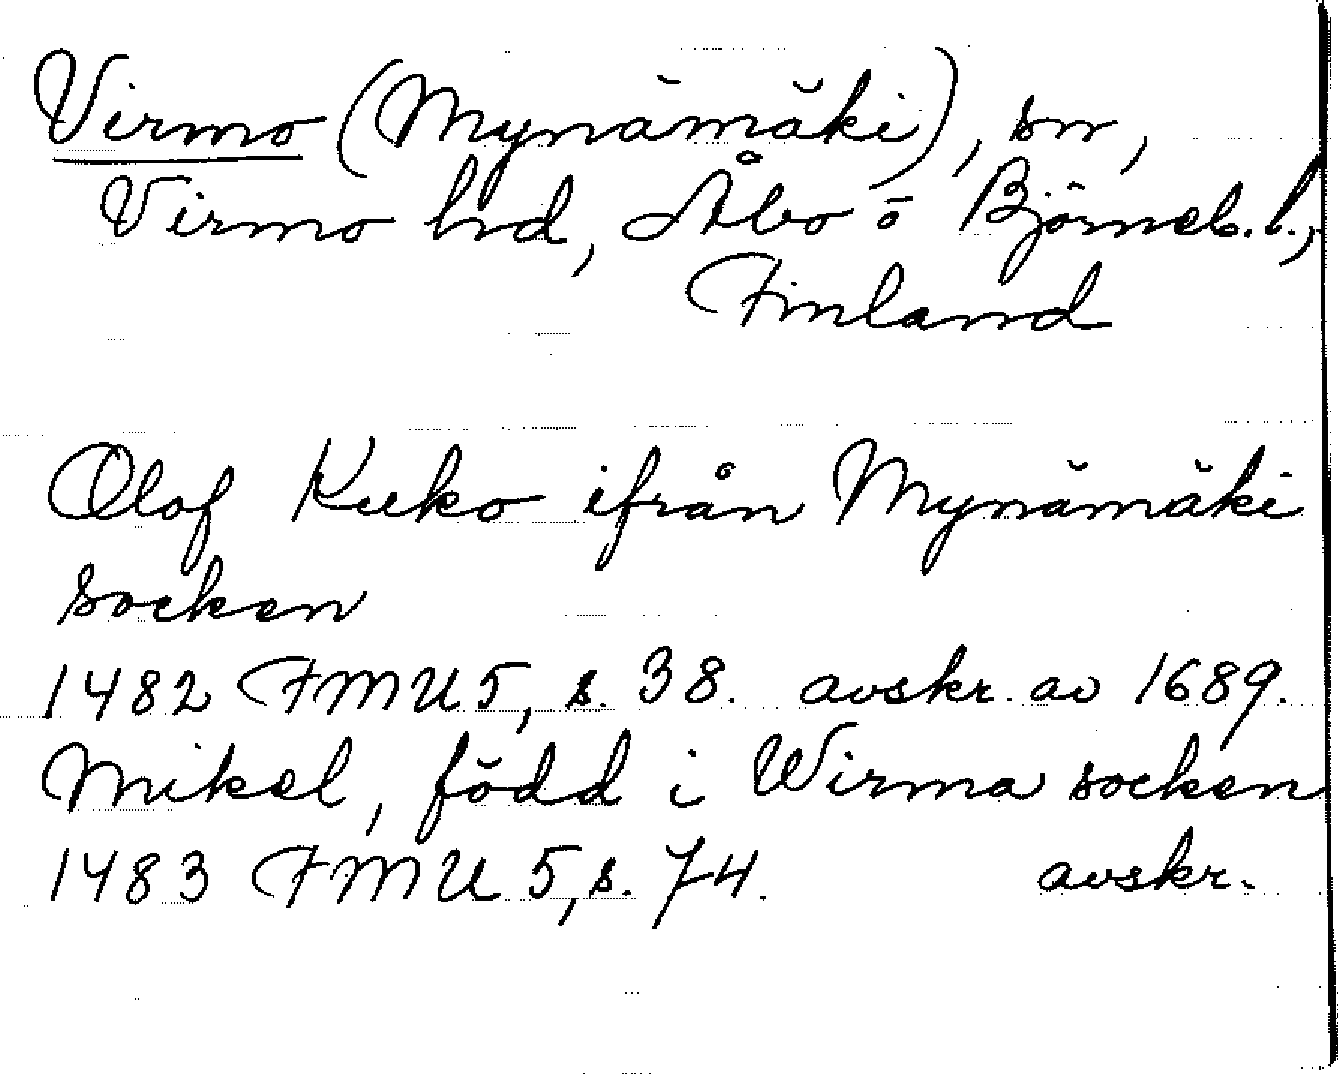 Virmo (Mynämäki), sn,
Virmo hd, Åbo o Björneb. l.,
Finland
Olof Kuko ifrån Mynämäki
socken
1482 FMU 5, s. 38. avskr. av 1689.
Mikel, född i Wirma socken
1483 FMU 5, s. 74. avskr.